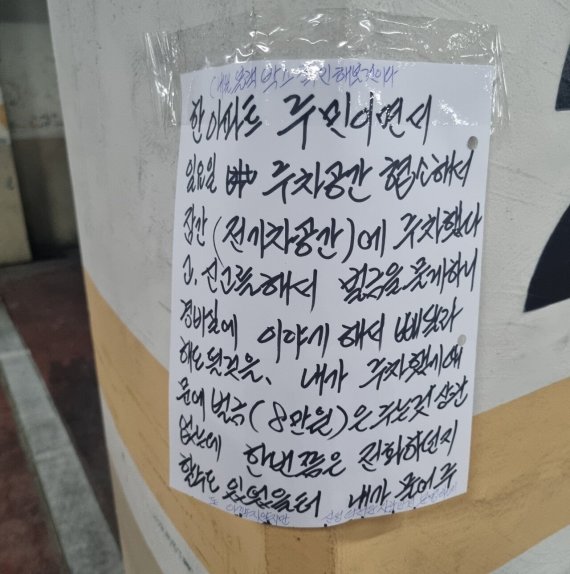 한 아파트 주민이면서
일요일 주차공간 협소해서
잠간(전기차공간)에 주차했다
고, 신고를 해서 벌금을 물게하니
경비실에 이야기 해서 빼달라
해도 될것을, 내가 주차했기에
문에 벌금(8만원)은 무는것 상관
없는데 한번쯤은 전화하던지
할수도 있었을터 내가 물어 주